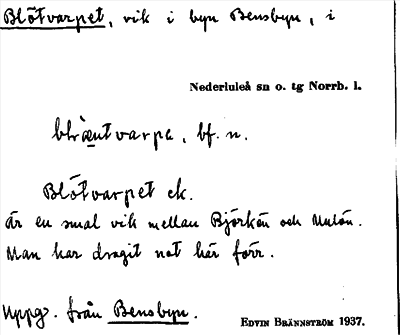 Blötvarpet, vik i byn Bensbyn, i
Nederluleå sn o. tg Norrb. l.
bf. n.
Blötvarpet ek.
är en smal vik mellan Björkön och
Man har dragit not här förr.
Uppg. från Bensbyn.
EDVIN BRÄNNSTRÖM 1937.